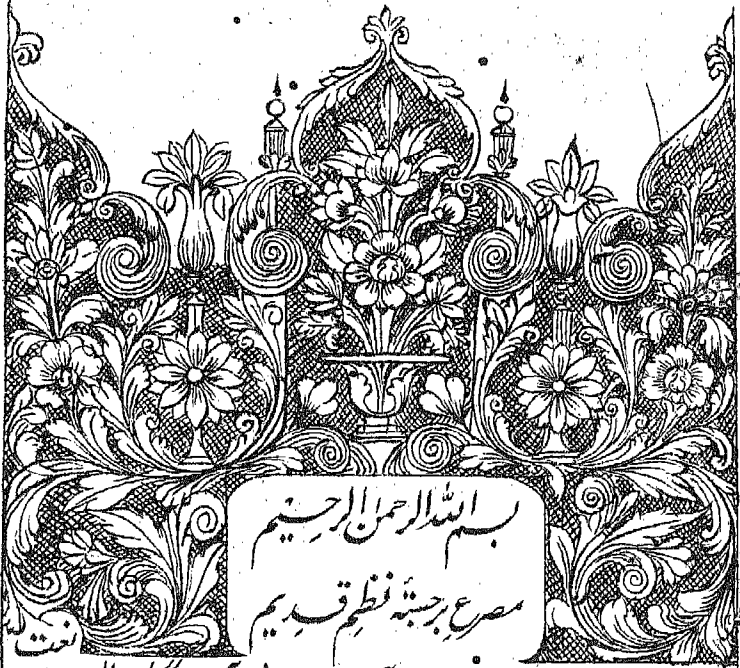 بسم الله الرحمن الرحیم
مصرع برجستۂ نظم قدیم
نعت